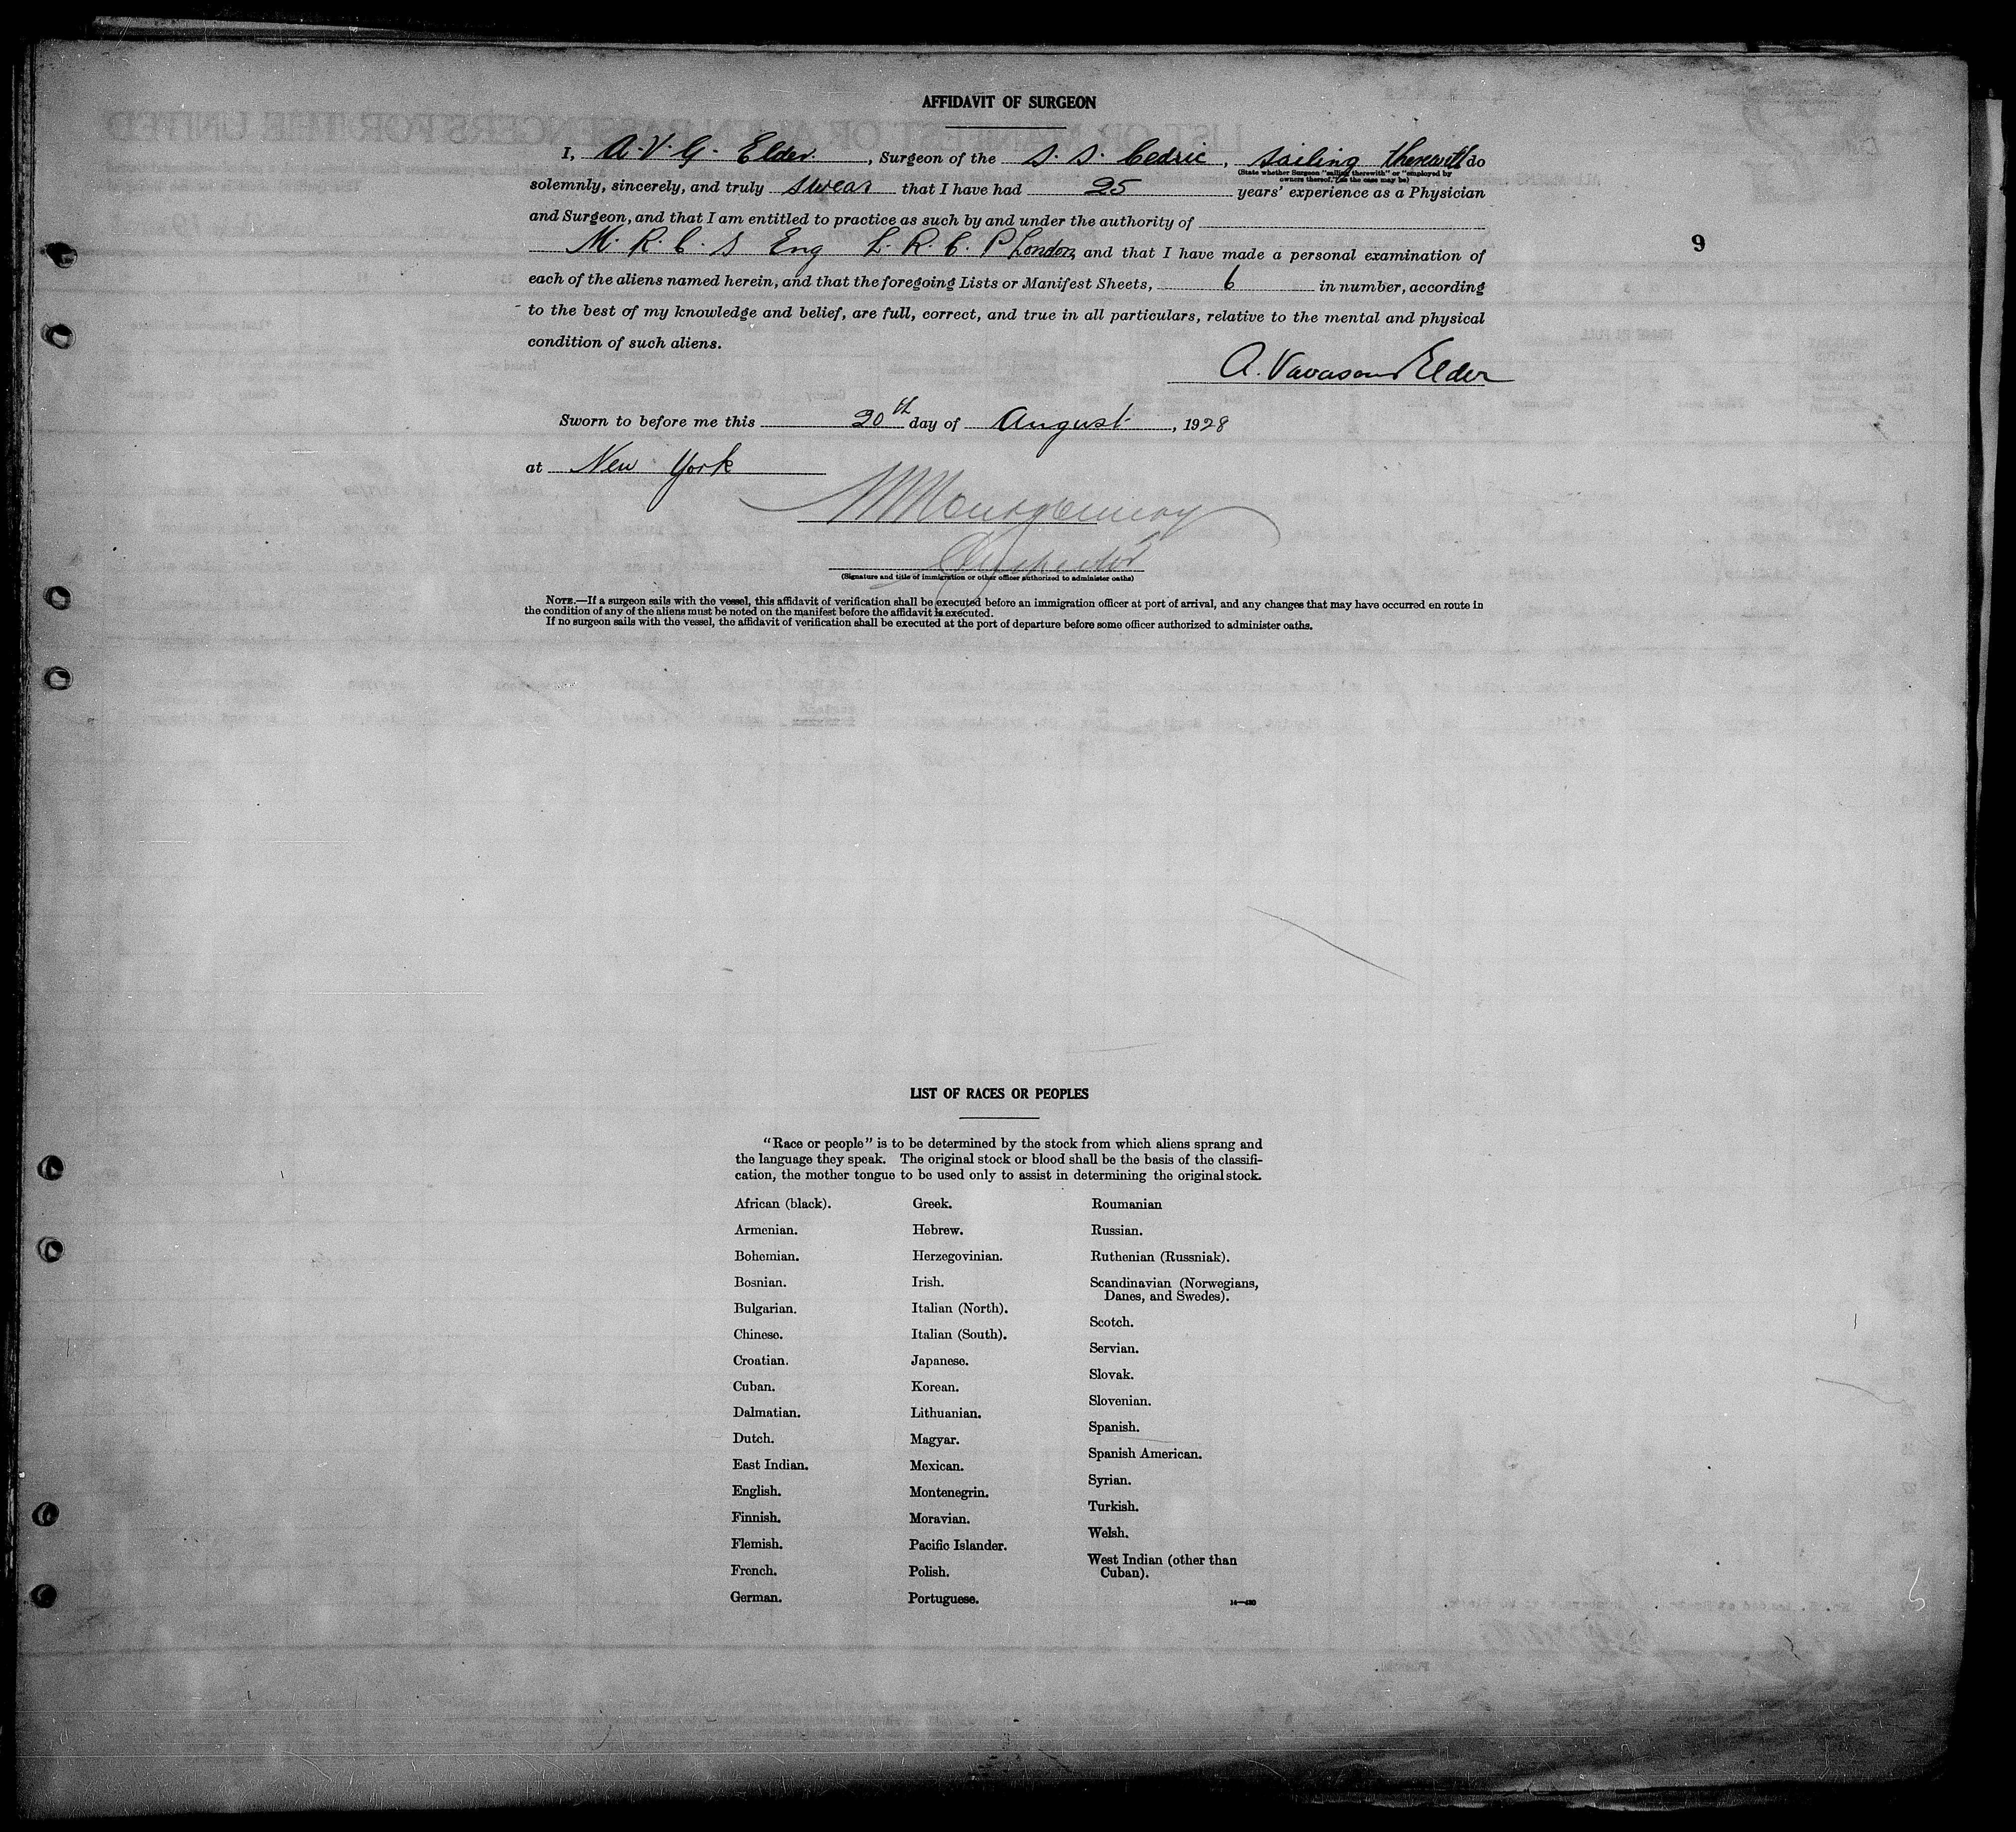 AFFIDAVIT OF SURGEON
I, A. V. G. Elder, Surgeon of the S. S. Cedric, sailing therewith do
(State whether Surgeon "sailing therewith" or "employed by
owners thereof," as the case may be)
solemnly, sincerely, and truly swear that I have had 25 years' experience as a Physician
and Surgeon, and that I am entitled to practice as such by and under the authority of
M. R. C. S Eng L. R. C. P London, and that I have made a personal examination of
9
each of the aliens named herein, and that the foregoing Lists or Manifest Sheets, 6 in number, according
to the best of my knowledge and belief, are full, correct, and true in all particulars, relative to the mental and physical
condition of such aliens.
A. Vavasour Elder
Sworn to before me this 20th day of August, 1928
at New York
Montgomery
Inspector
(Signature and title of immigration or other officer authorized to administer oaths)
NOTE.—If a surgeon sails with the vessel, this affidavit of verification shall be executed before an immigration officer at port of arrival, and any changes that may have occurred en route in
the condition of any of the aliens must be noted on the manifest before the affidavit is executed.
If no surgeon sails with the vessel, the affidavit of verification shall be executed at the port of departure before some officer authorized to administer oaths.
LIST OF RACES OR PEOPLES
"Race or people" is to be determined by the stock from which aliens sprang and
the language they speak. The original stock or blood shall be the basis of the classifi-
cation, the mother tongue to be used only to assist in determining the original stock.
African (black).
Armenian.
Bohemian.
Bosnian.
Bulgarian.
Chinese.
Croatian.
Cuban.
Dalmatian.
Dutch.
East Indian.
English.
Finnish.
Flemish.
French.
German.
Greek.
Hebrew.
Herzegovinian.
Irish.
Italian (North).
Italian (South).
Japanese.
Korean.
Lithuanian.
Magyar.
Mexican.
Montenegrin.
Moravian.
Pacific Islander.
Polish.
Portuguese.
Roumanian
Russian.
Ruthenian (Russniak).
Scandinavian (Norwegians,
Danes, and Swedes).
Scotch.
Servian.
Slovak.
Slovenian.
Spanish.
Spanish American.
Syrian.
Turkish.
Welsh.
West Indian (other than
Cuban).
14—430